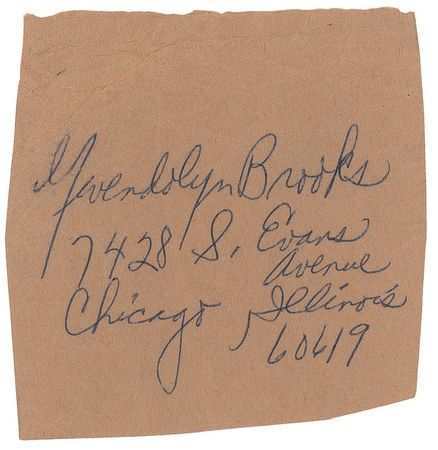 Gwendolyn Brooks
7428 S. Evans
Avenue
Chicago, Illinois
60619